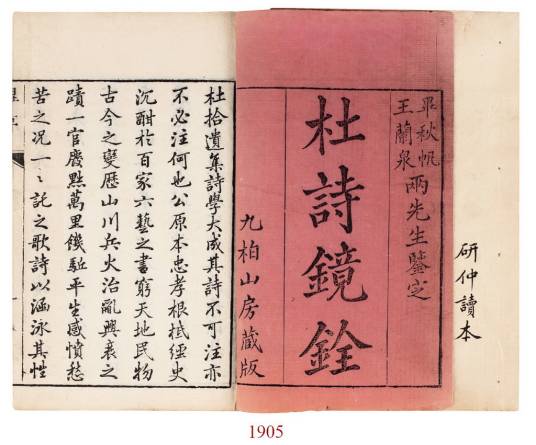 研仲讀本
畢秋帆
王蘭泉
兩先生鑒定
杜詩鏡銓
九柏山房藏版
杜拾遺集詩學大成其詩不可注亦
不必注何也公原本忠孝根柢經史
沉酣於百家六藝之書窮天地民物
古今之變歷山川兵火治亂興衰之
蹟一官廢黜萬里饑驅平生感憤愁
苦之况一〻託之歌詩以涵泳其性
1905